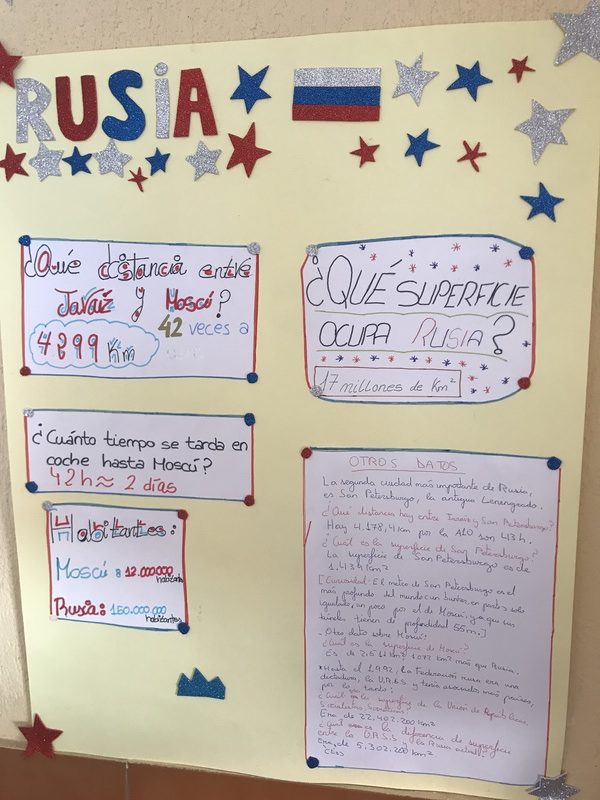 RUSIA
¿Qué distancia entre
Jaraíz y Moscú?
4299 Km
42 veces a
¿QUÉ SUPERFICIE
OCUPA RUSIA?
17 millones de Km²
¿Cuánto tiempo se tarda en
coche hasta Moscú?
42h ≈ 2 días
Habitantes:
Moscú: 12.000.000
habitantes
Rusia: 150.000.000
habitantes
OTROS DATOS
La segunda ciudad más importante de Rusia,
es San Petersburgo, la antigua Leningrado.
¿Qué distancia hay entre Jaraíz y San Petersburgo?
Hay 4.178,4 Km por la A10 son 43h.
¿Cuál es la superficie de San Petersburgo?
La superficie de San Petersburgo es de
1.439 Km²
[Curiosidad: El metro de San Petersburgo es el
más profundo del mundo
igualado, un poco por el de Moscú, ya que sus
túneles tienen de profundidad 55m.]
- Otro dato sobre Moscú:
¿Cuál es la superficie de Moscú?
Es de
más que Rusia.
*Hasta el 1992, la Federación rusa era una
dictadura, la U.R.S.S y tenía asociados más países,
por lo tanto:
¿Cuál es la superficie de la Unión de Repúblicas
Socialistas Soviéticas?
Era de 22.402.200 Km²
¿Cuál es la diferencia de superficie
entre la U.R.S.S y la Rusia actual?
Era de 5.302.200 Km²